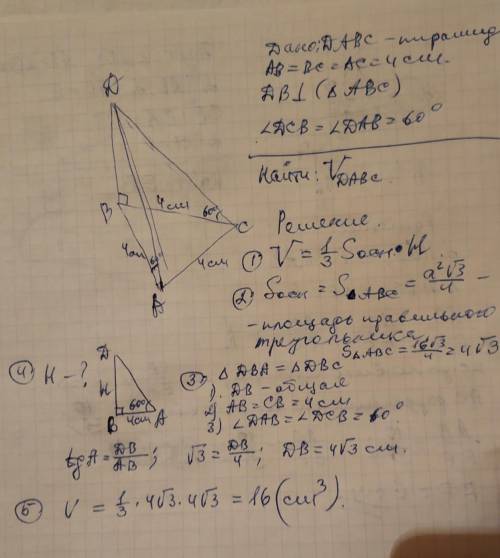 Дано: DABC - пирамид
AB = BC = AC = 4 см.
DB ⊥ (△ ABC)
∠DCB = ∠DAB = 60°
Найти: V_DABC.
D
B
4 см
60°
C
4 см
4 см
A
Решение.
① V = 1/3 Sосн · H.
② Sосн = S△ABC = a²√3/4 -
- площадь правильного
треугольника
S△ABC = 16√3/4 = 4√3
③ △ DBA = △DBC
1) DB - общая
2) AB = CB = 4 см
3) ∠DAB = ∠DCB = 60°
④ H - ?
D
H
60°
B
4 см
A
tg A = DB/AB ; √3 = DB/4 ; DB = 4√3 см.
⑤ V = 1/3 · 4√3 · 4√3 = 16 (см³).